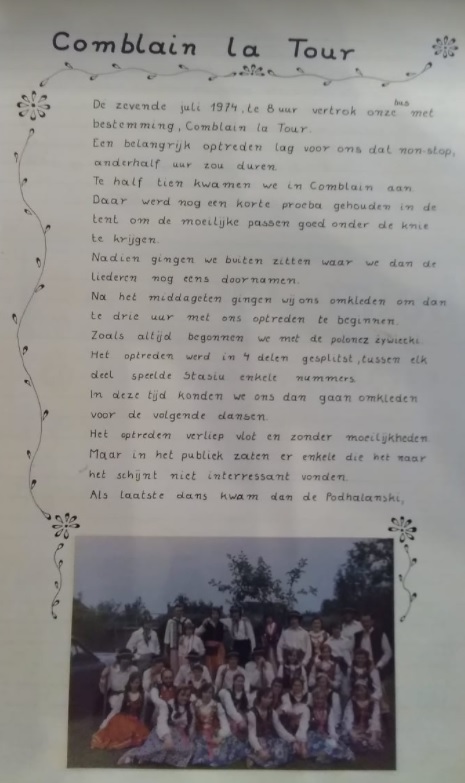 Comblain la Tour
De zevende juli 1974, te 8 uur vertrok onze bus met
bestemming, Comblain la Tour.
Een belangrijk optreden lag voor ons dat non-stop,
anderhalf uur zou duren.
Te half tien kwamen we in Comblain aan.
Daar werd nog een korte proeba gehouden in de
tent om de moeilijke passen goed onder de knie
te krijgen.
Nadien gingen we buiten zitten waar we dan de
liederen nog eens doornamen.
Na het middageten gingen wij ons omkleden om dan
te drie uur met ons optreden te beginnen.
Zoals altijd begonnen we met de polonez żywiecki.
Het optreden werd in 4 delen gesplitst, tussen elk
deel speelde Stasiu enkele nummers.
In deze tijd konden we ons dan gaan omkleden
voor de volgende dansen.
Het optreden verliep vlot en zonder moeilijkheden.
Maar in het publiek zaten er enkele die het naar
het schijnt niet interressant vonden.
Als laatste dans kwam dan de Podhalanski,